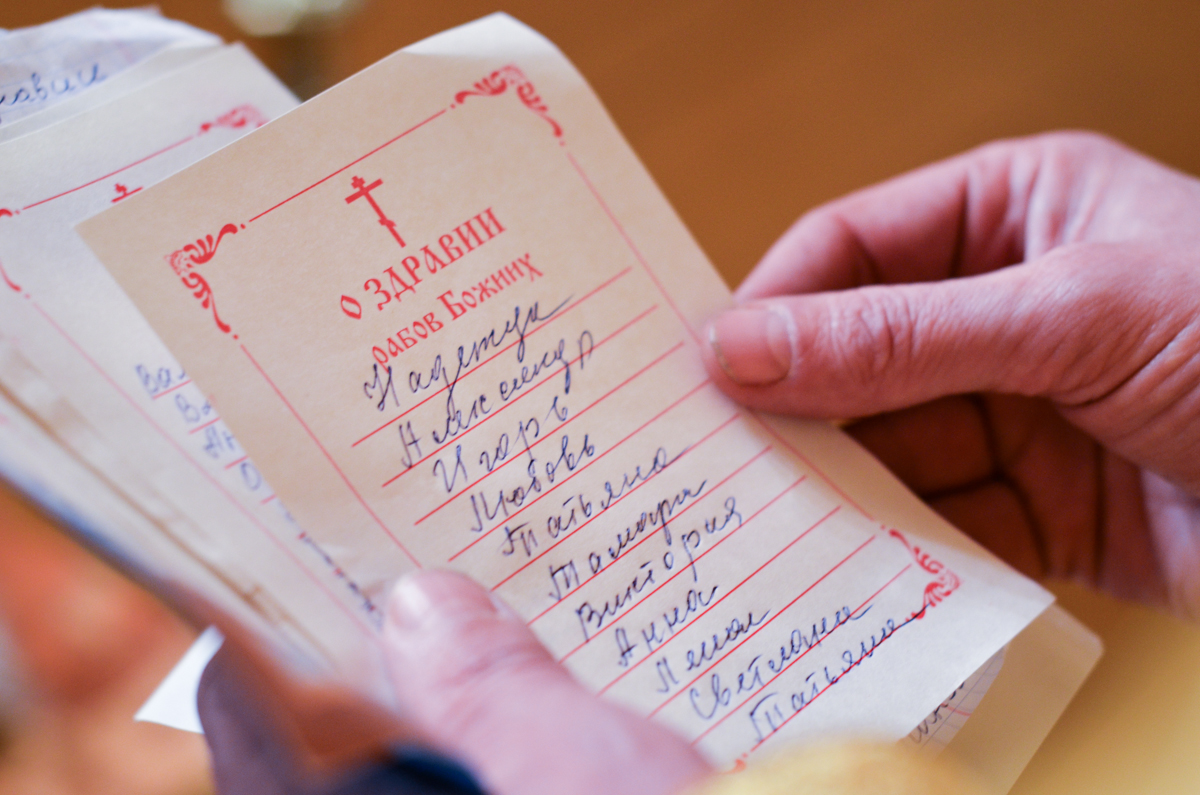 О ЗДРАВИИ
рабов Божиих
Надежда
Александр
Игорь
Любовь
Татьяна
Тамара
Виктория
Анна
Светлана
Татьяна